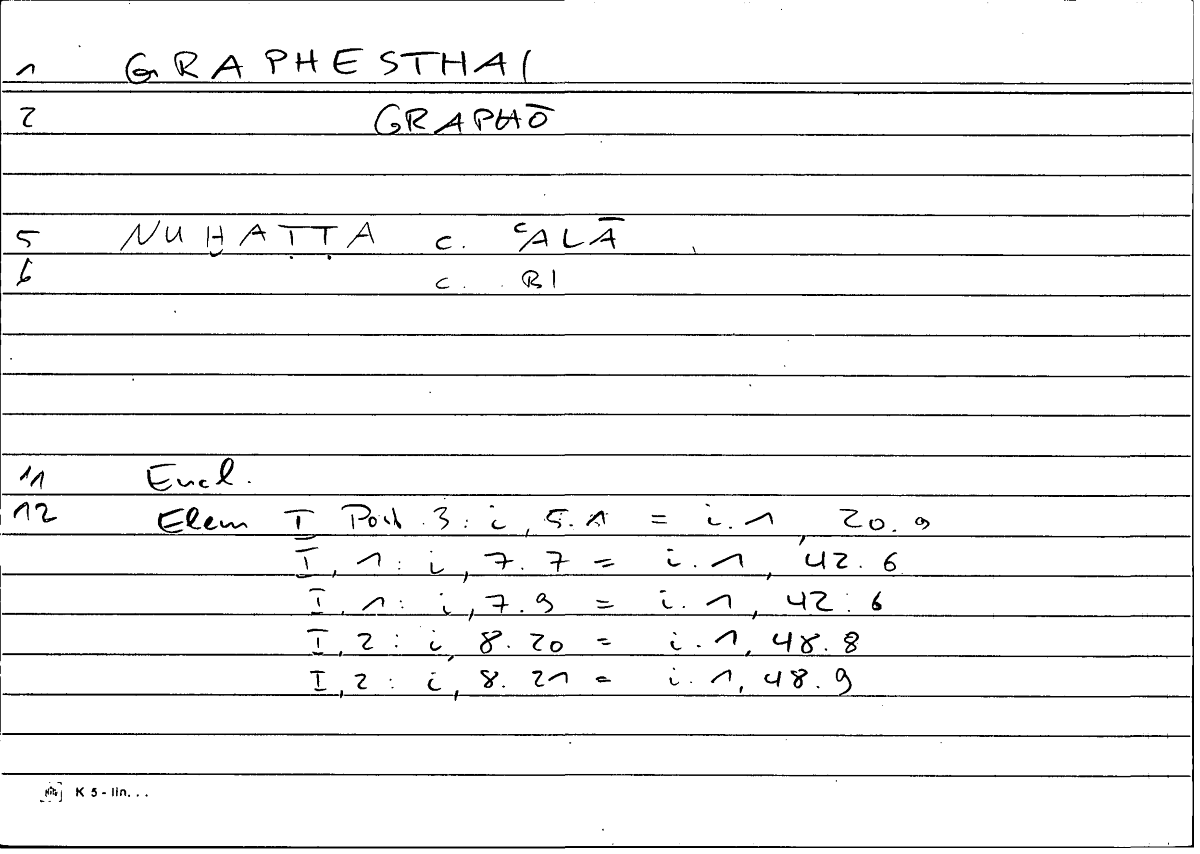 1 GRAPHESTHAI
2 GRAPHŌ
5 NUḪAṬṬA c. ʿALĀ
6 c. BI
11 Eucl.
12 Elem I Post. 3: i, 5.1 = i.1 20.9
I, 1: i, 7.7 = i.1, 42.6
I, 1: i, 7.9 = i.1, 42.6
I, 2: i, 8.20 = i.1, 48.8
I, 2: i, 8.21 = i.1, 48.9
K 5 - lin...